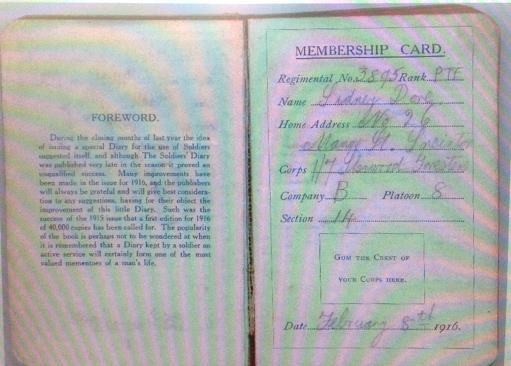 FOREWORD.
During the closing months of last year the idea
of issuing a special Diary for the use of Soldiers
suggested itself, and although The Soldiers' Diary
was published very late in the season it proved an
unqualified success. Many improvements have
been made in the issue for 1916, and the publishers
will always be grateful and will give best considera-
tion to any suggestions, having for their object the
improvement of this little Diary. Such was the
success of the 1915 issue that a first edition for 1916
of 40,000 copies has been called for. The popularity
of the book is perhaps not to be wondered at when
it is remembered that a Diary kept by a soldier on
active service will certainly form one of the most
valued mementoes of a man's life.
MEMBERSHIP CARD.
Regimental No. 3895 Rank PTE
Name Sidney
Home Address No 26
St.
Corps 1/7 Sherwood Foresters
Company B Platoon 8
Section 14
GUM THE CREST OF
YOUR CORPS HERE.
Date February 8th 1916.